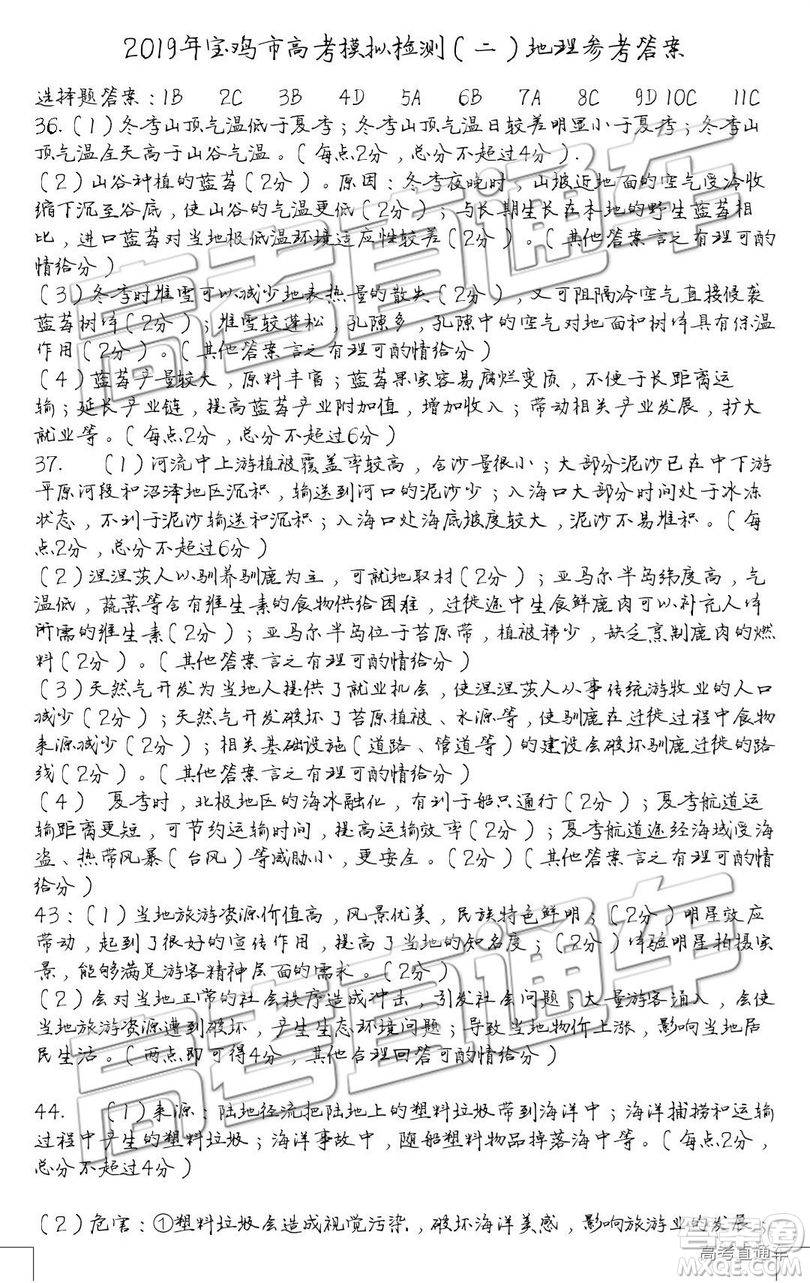 2019年宝鸡市高考模拟检测(二)地理参考答案
选择题答案:1B 2C 3B 4D 5A 6B 7A 8C 9D 10C 11C
36.(1)冬季山顶气温低于夏季;冬季山顶气温日较差明显小于夏季;冬季山
顶气温全天高于山谷气温。(每点2分,总分不超过4分).
(2)山谷种植的蓝莓(2分)。原因:冬季夜晚时,山坡近地面的空气受冷收
缩下沉至谷底,使山谷的气温更低(2分);与长期生长在本地的野生蓝莓相
比,进口蓝莓对当地极低温环境适应性较差(2分)。(其他答案言之有理可酌
情给分)
(3)冬季时堆雪可以减少地表热量的散失(2分),又可阻隔冷空气直接侵袭
蓝莓树体(2分);堆雪较蓬松,孔隙多,孔隙中的空气对地面和树体具有保温
作用(2分)。(其他答案言之有理可酌情给分)
(4)蓝莓产量较大,原料丰富;蓝莓果实容易腐烂变质,不便于长距离运
输;延长产业链,提高蓝莓产业附加值,增加收入;带动相关产业发展,扩大
就业等。(每点2分,总分不超过6分)
37. (1)河流中上游植被覆盖率较高,含沙量很小;大部分泥沙已在中下游
平原河段和沼泽地区沉积,输送到河口的泥沙少;入海口大部分时间处于冰冻
状态,不利于泥沙输送和沉积;入海口处海底坡度较大,泥沙不易堆积。(每
点2分,总分不超过6分)
(2)涅涅茨人以驯养驯鹿为主,可就地取材(2分);亚马尔半岛纬度高,气
温低,蔬菜等含有维生素的食物供给困难,迁徙途中生食鲜鹿肉可以补充人体
所需的维生素(2分);亚马尔半岛位于苔原带,植被稀少,缺乏烹制鹿肉的燃
料(2分)。(其他答案言之有理可酌情给分)
(3)天然气开发为当地人提供了就业机会,使涅涅茨人从事传统游牧业的人口
减少(2分);天然气开发破坏了苔原植被、水源等,使驯鹿在迁徙过程中食物
来源减少(2分);相关基础设施(道路、管道等)的建设会破坏驯鹿迁徙的路
线(2分)。(其他答案言之有理可酌情给分)
(4) 夏季时,北极地区的海冰融化,有利于船只通行(2分);夏季航道运
输距离更短,可节约运输时间,提高运输效率(2分);夏季航道途经海域受海
盗、热带风暴(台风)等威胁小,更安全。(2分)(其他答案言之有理可酌情
给分)
43:(1)当地旅游资源价值高,风景优美,民族特色鲜明;(2分)明星效应
带动,起到了很好的宣传作用,提高了当地的知名度;(2分)体验明星拍摄实
景,能够满足游客精神层面的需求。(2分)
(2)会对当地正常的社会秩序造成冲击,引发社会问题;大量游客涌入,会使
当地旅游资源遭到破坏,产生生态环境问题;导致当地物价上涨,影响当地居
民生活。(两点即可得4分,其他合理回答可酌情给分)
44. (1)来源:陆地径流把陆地上的塑料垃圾带到海洋中;海洋捕捞和运输
过程中产生的塑料垃圾;海洋事故中,随船塑料物品掉落海中等。(每点2分,
总分不超过4分)
(2)危害:①塑料垃圾会造成视觉污染,破坏海洋美感,影响旅游业的发展;
高考直通车
高考直通车
高考直通车
答案圈
MXQE.COM
高考直通车